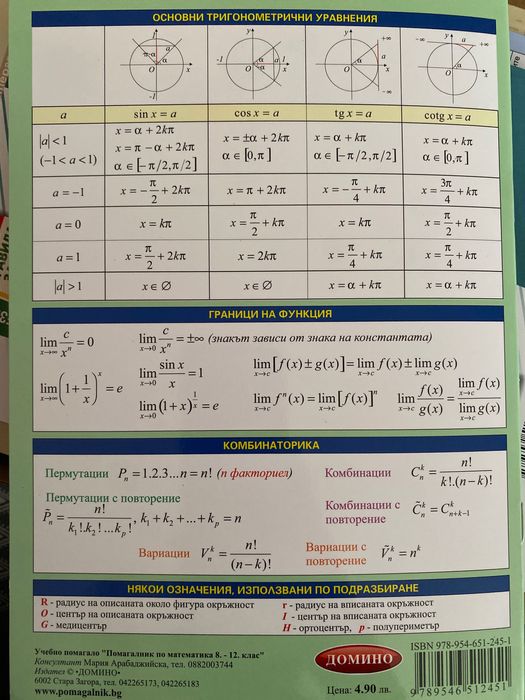 ОСНОВНИ ТРИГОНОМЕТРИЧНИ УРАВНЕНИЯ
y y y y
π-α α α a 1 α a -∞ a +∞
O x -1 O x O x O x
-1 +∞ -∞
a sin x = a cos x = a tg x = a cotg x = a
|a| < 1 (-1 < a < 1) x = α + 2kπ x = π - α + 2kπ α ∈ [-π/2, π/2] x = ±α + 2kπ α ∈ [0, π] x = α + kπ α ∈ [-π/2, π/2] x = α + kπ α ∈ [0, π]
a = -1 x = -π/2 + 2kπ x = π + 2kπ x = -π/4 + kπ x = 3π/4 + kπ
a = 0 x = kπ x = π/2 + kπ x = kπ x = π/2 + kπ
a = 1 x = π/2 + 2kπ x = 2kπ x = π/4 + kπ x = π/4 + kπ
|a| > 1 x ∈ ∅ x ∈ ∅ x = α + kπ x = α + kπ
ГРАНИЦИ НА ФУНКЦИЯ
lim x→∞ c/xⁿ = 0 lim x→0 c/xⁿ = ±∞ (знакът зависи от знака на константата)
lim x→∞ (1 + 1/x)ˣ = e lim x→0 sin x/x = 1 lim x→c [f(x) ± g(x)] = lim x→c f(x) ± lim x→c g(x)
lim x→0 (1 + x)^(1/x) = e lim x→c fⁿ(x) = lim x→c [f(x)]ⁿ lim x→c f(x)/g(x) = lim x→c f(x)/lim x→c g(x)
КОМБИНАТОРИКА
Пермутации Pₙ = 1.2.3...n = n! (n факториел) Комбинации Cₙᵏ = n!/k!.(n - k)!
Пермутации с повторение
P̃ₙ = n!/k₁!.k₂!...kₚ!, k₁ + k₂ + ... + kₚ = n Комбинации с повторение C̃ₙᵏ = Cᵏₙ₊ₖ₋₁
Вариации Vₙᵏ = n!/(n - k)! Вариации с повторение Ṽₙᵏ = nᵏ
НЯКОИ ОЗНАЧЕНИЯ, ИЗПОЛЗВАНИ ПО ПОДРАЗБИРАНЕ
R - радиус на описаната около фигура окръжност r - радиус на вписаната окръжност
O - център на описаната окръжност I - център на вписаната окръжност
G - медицентър H - ортоцентър, p - полупериметър
Учебно помагало "Помагалник по математика 8. - 12. клас"
Консултант Мария Арабаджийска, тел. 0882003744
Издател ©«ДОМИНО»
6002 Стара Загора, тел. 042265173, 042265183
www.pomagalnik.bg
ДОМИНО
Цена: 4.90 лв.
ISBN 978-954-651-245-1
9 789546 512451